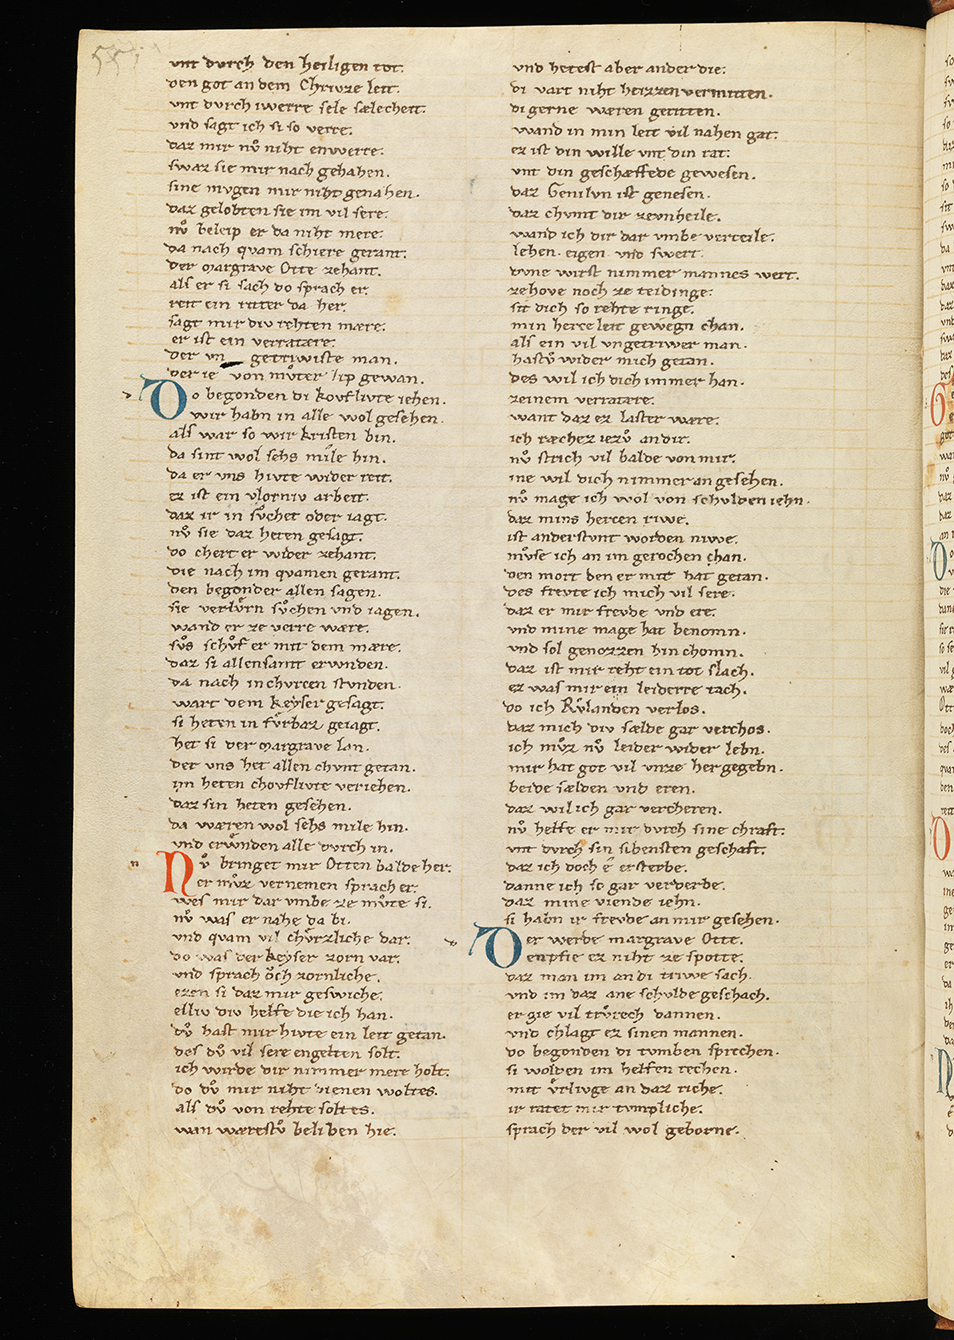 vnt durch den heiligen tot.
den got an dem Chriuze leit.
vnt durch iwerre sele sælecheit.
vnd sagt ich si so verre.
daz mir nv̊ niht enwerre.
swaz sie mir nach gehahen.
sine mvgen mir niht genahen.
daz gelobten sie im vil sere.
nv̊ beleip er da niht mere.
da nach quam schiere gerant.
der margrave Otte zehant.
als er si sach do sprach er.
reit ein ritter da her.
sagt mir div rehten mære.
er ist ein verratære.
der vn getriwiste man.
der ie von mv̊ter lip gewan.
Do begonden di kovflivte iehen.
wir habn in alle wol gesehen.
als war so wir kristen bin.
da sint wol sehs mile hin.
da er vns hivte wider reit.
ez ist ein vlorniv arbeit.
daz ir in sv̊chet oder iagt.
nv̊ sie daz heten gesagt.
do chert er wider zehant.
die nach im quamen gerant.
den begonder allen sagen.
sie verlv̊rn sv̊chen vnd iagen.
wand er ze verre wære.
svs schv̊f er mit dem mære.
daz si allensamt erwnden.
da nach in churcen stunden.
wart dem keyser gesagt.
si heten in fv̊rbaz geiagt.
het si der margrave lan.
der vns het allen chvnt getan.
im heten chovflivte veriehen.
daz sin heten gesehen.
da wæren wol sehs mile hin.
vnd erwnden alle durch in.
Nv̊ bringet mir Otten balde her.
er mv̊z vernemen sprach er.
wes mir dar vmbe ze mv̊te si.
nv̊ was er nahe da bi.
vnd quam vil chv̊rzliche dar.
do was der keyser zorn var.
vnd sprach ŏch zornliche.
ezen si daz mir geswiche.
elliv div helfe die ich han.
dv̊ hast mir hivte ein leit getan.
des dv̊ vil sere engelten solt.
ich wirde dir nimmer mere holt.
do dv̊ mir niht dienen woltes.
als dv̊ von rehte soltes.
wan wærestv̊ beliben hie.
vnd hetest aber ander die.
di vart niht herzen vermitten.
di gerne wæren geritten.
wand in min leit vil nahen gat.
ez ist din wille vnt din rat.
vnt din geschæffede gewesen.
daz Genilvn ist genesen.
daz chvmt dir zevnheile.
wand ich dir dar vmbe verteile.
lehen. eigen vnd swert.
dvne wirst nimmer mannes wert.
zehove noch ze teidinge.
sit dich so rehte ringe.
min herce leit gewegn chan.
als ein vil vngetriwer man.
hastv̊ wider mich getan.
des wil ich dich immer han.
zeinem verratære.
want daz ez laster wære.
ich ræchez iezv̊ an dir.
nv̊ strich vil balde von mir.
ine wil dich nimmer an gesehen.
nv̊ mage ich wol von schvlden iehn.
daz mins hercen riwe.
ist anderstunt worden niwe.
mv̊se ich an im gerochen chan.
den mort den er mir hat getan.
des frevte ich mich vil sere.
daz er mir frevde vnd ere.
vnd mine mage hat benomn.
vnd sol genozzen hin chomn.
daz ist mir reht ein tot slach.
ez was mir ein leiderre tach.
do ich Rv̊landen verlos.
daz mich div sælde gar verchos.
ich mv̊z nv̊ leider wider lebn.
mir hat got vil vnze her gegebn.
beide sælden vnd eren.
daz wil ich gar vercheren.
nv̊ helfe er mir durch sine chraft.
vnt durch sin sibensten geschaft.
daz ich doch ê ersterbe.
danne ich so gar verderbe.
daz mine viende iehn.
si habn ir frevde an mir gesehen.
Der werde margrave Otte.
enpfie ez niht ze spotte.
daz man im an di triwe sach.
vnd im daz ane schvlde geschach.
er gie vil trv̊rech dannen.
vnd chlagt ez sinen mannen.
do begonden di tvmben sprechen.
si wolden im helfen rechen.
mit v̊rlivge an daz riche.
ir ratet mir tvmpliche.
sprach der vil wol geborne.